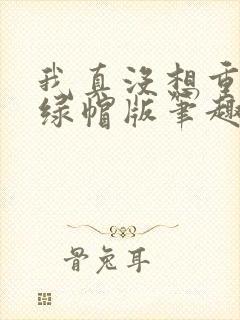 我真没想重
绿帽版笔趣
骨兔耳